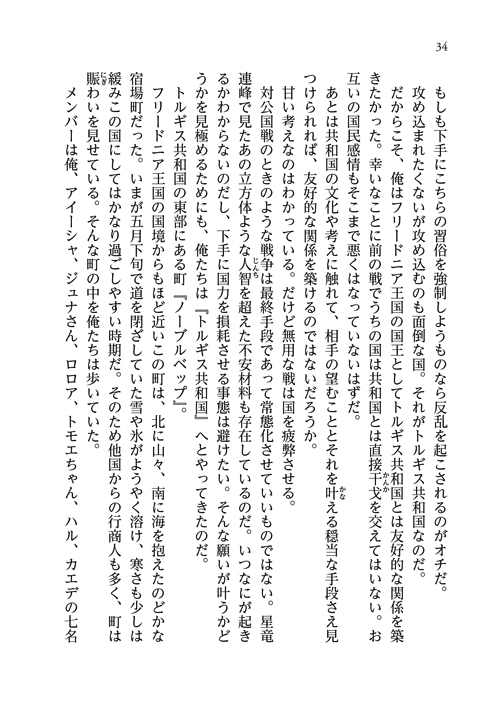 34
もしも下手にこちらの習俗を強制しようものなら反乱を起こされるのがオチだ。
攻め込まれたくないが攻め込むのも面倒な国。それがトルギス共和国なのだ。
だからこそ、俺はフリードニア王国の国王としてトルギス共和国とは友好的な関係を築
きたかった。幸いなことに前の戦でうちの国は共和国とは直接干戈を交えてはいない。お
かんか
互いの国民感情もそこまで悪くはなっていないはずだ。
あとは共和国の文化や考えに触れて、相手の望むこととそれを叶える穏当な手段さえ見
かな
つけられれば、友好的な関係を築けるのではないだろうか。
甘い考えなのはわかっている。だけど無用な戦は国を疲弊させる。
対公国戦のときのような戦争は最終手段であって常態化させていいものではない。星竜
連峰で見たあの立方体ような人智を超えた不安材料も存在しているのだ。いつなにが起き
じんち
るかわからないのだし、下手に国力を損耗させる事態は避けたい。そんな願いが叶うかど
うかを見極めるためにも、俺たちは『トルギス共和国』へとやってきたのだ。
トルギス共和国の東部にある町『ノーブルベップ』。
フリードニア王国の国境からもほど近いこの町は、北に山々、南に海を抱えたのどかな
宿場町だった。いまが五月下旬で道を閉ざしていた雪や氷がようやく溶け、寒さも少しは
緩みこの国にしてはかなり過ごしやすい時期だ。そのため他国からの行商人も多く、町は
賑わいを見せている。そんな町の中を俺たちは歩いていた。
にぎ
メンバーは俺、アイーシャ、ジュナさん、ロロア、トモエちゃん、ハル、カエデの七名